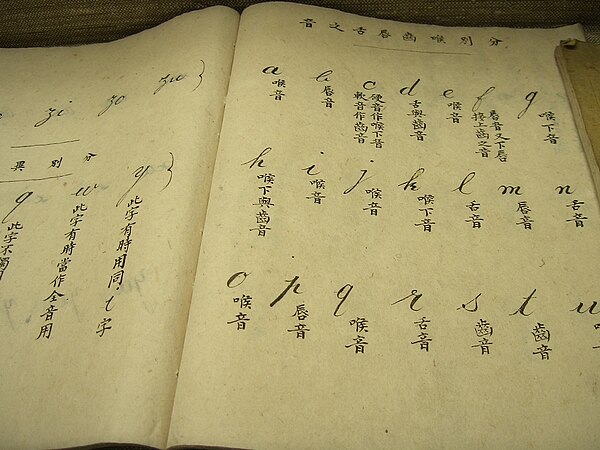 zi zo zu
分別異
y 此字有時用同i字
w 此字有時當作全音用
q 此字不獨
分別喉齒唇舌之音
a b c d e f g
喉音
唇音
硬音作喉下音
軟音作齒音
舌與齒音
喉音
唇音又下唇
接上齒之音
喉下音
h i j k l m n
喉下與齒音
喉音
喉音
喉下音
舌音
唇音
舌音
o p q r s t u
喉音
唇音
喉音
舌音
齒音
齒音